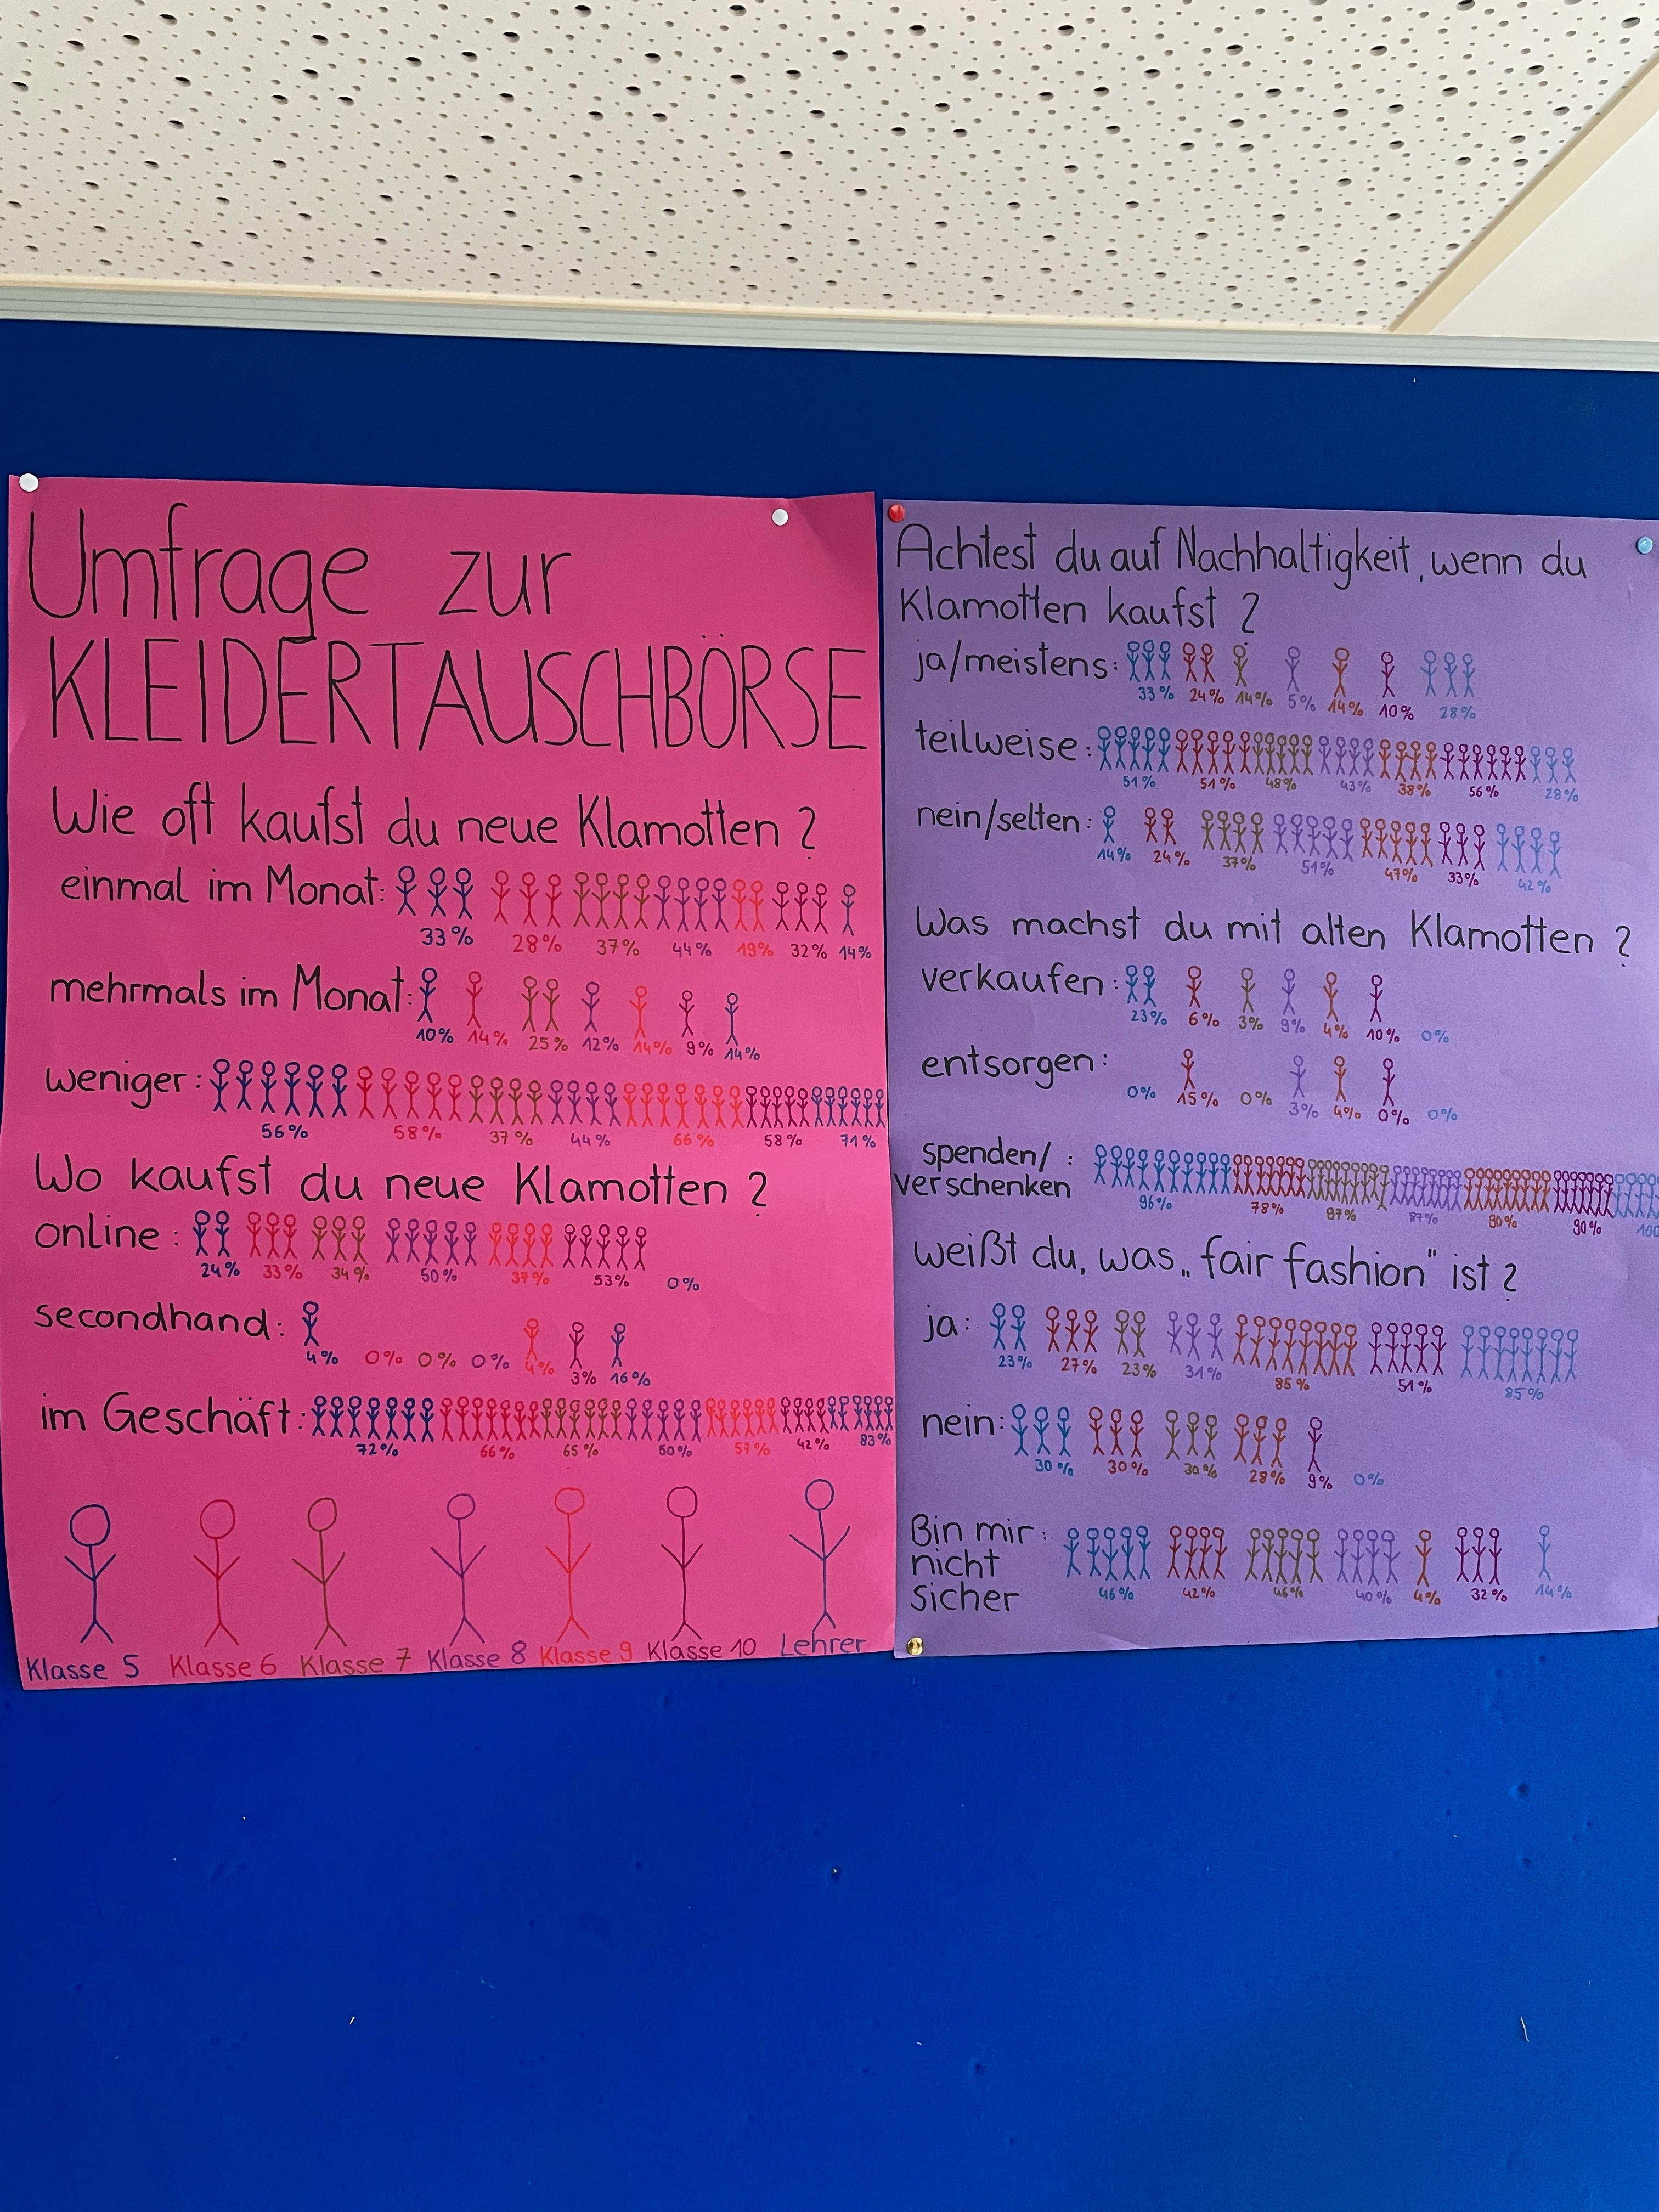 Umfrage zur
KLEIDERTAUSCHBÖRSE
Wie oft kaufst du neue Klamotten ?
einmal im Monat:
33% 28% 37% 44% 19% 32% 14%
mehrmals im Monat:
10% 14% 25% 12% 14% 9% 14%
weniger:
56% 58% 37% 44% 66% 58% 71%
Wo kaufst du neue Klamotten ?
online :
24% 33% 34% 50% 37% 53% 0%
secondhand:
4% 0% 0% 0% 4% 3% 16%
im Geschäft:
72% 66% 65% 50% 57% 42% 83%
Klasse 5 Klasse 6 Klasse 7 Klasse 8 Klasse 9 Klasse 10 Lehrer
Achtest du auf Nachhaltigkeit, wenn du
Klamotten kaufst ?
ja/meistens:
33% 24% 14% 5% 14% 10% 28%
teilweise:
51% 51% 48% 43% 38% 56% 28%
nein/selten:
14% 24% 37% 51% 47% 33% 42%
Was machst du mit alten Klamotten ?
verkaufen:
23% 6% 3% 9% 4% 10% 0%
entsorgen:
0% 15% 0% 3% 4% 0% 0%
spenden/ :
verschenken
96% 78% 97% 87% 90% 90% 100
weißt du, was „fair fashion" ist ?
ja:
23% 27% 23% 31% 85% 51% 85%
nein:
30% 30% 30% 28% 9% 0%
Bin mir :
nicht
sicher
46% 42% 46% 40% 4% 32% 14%